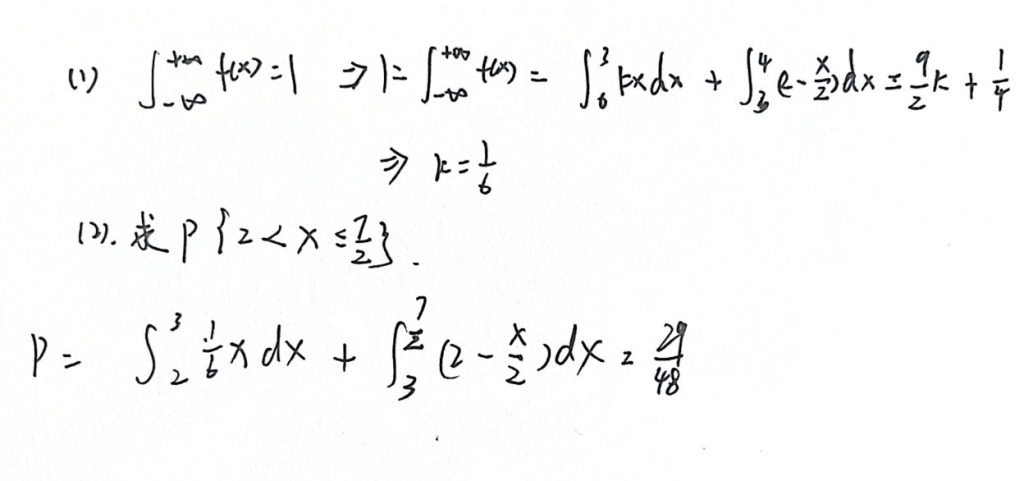 (1) ∫_{-∞}^{+∞} f(x) = 1 ⇒ 1 = ∫_{-∞}^{+∞} f(x) = ∫_0^3 kx dx + ∫_3^4 (2 - x/2) dx = 9/2 k + 1/4
⇒ k = 1/6
(2). 求 P {2 < X ≤ 7/2}.
P = ∫_2^3 1/6 x dx + ∫_3^{7/2} (2 - x/2) dx = 29/48